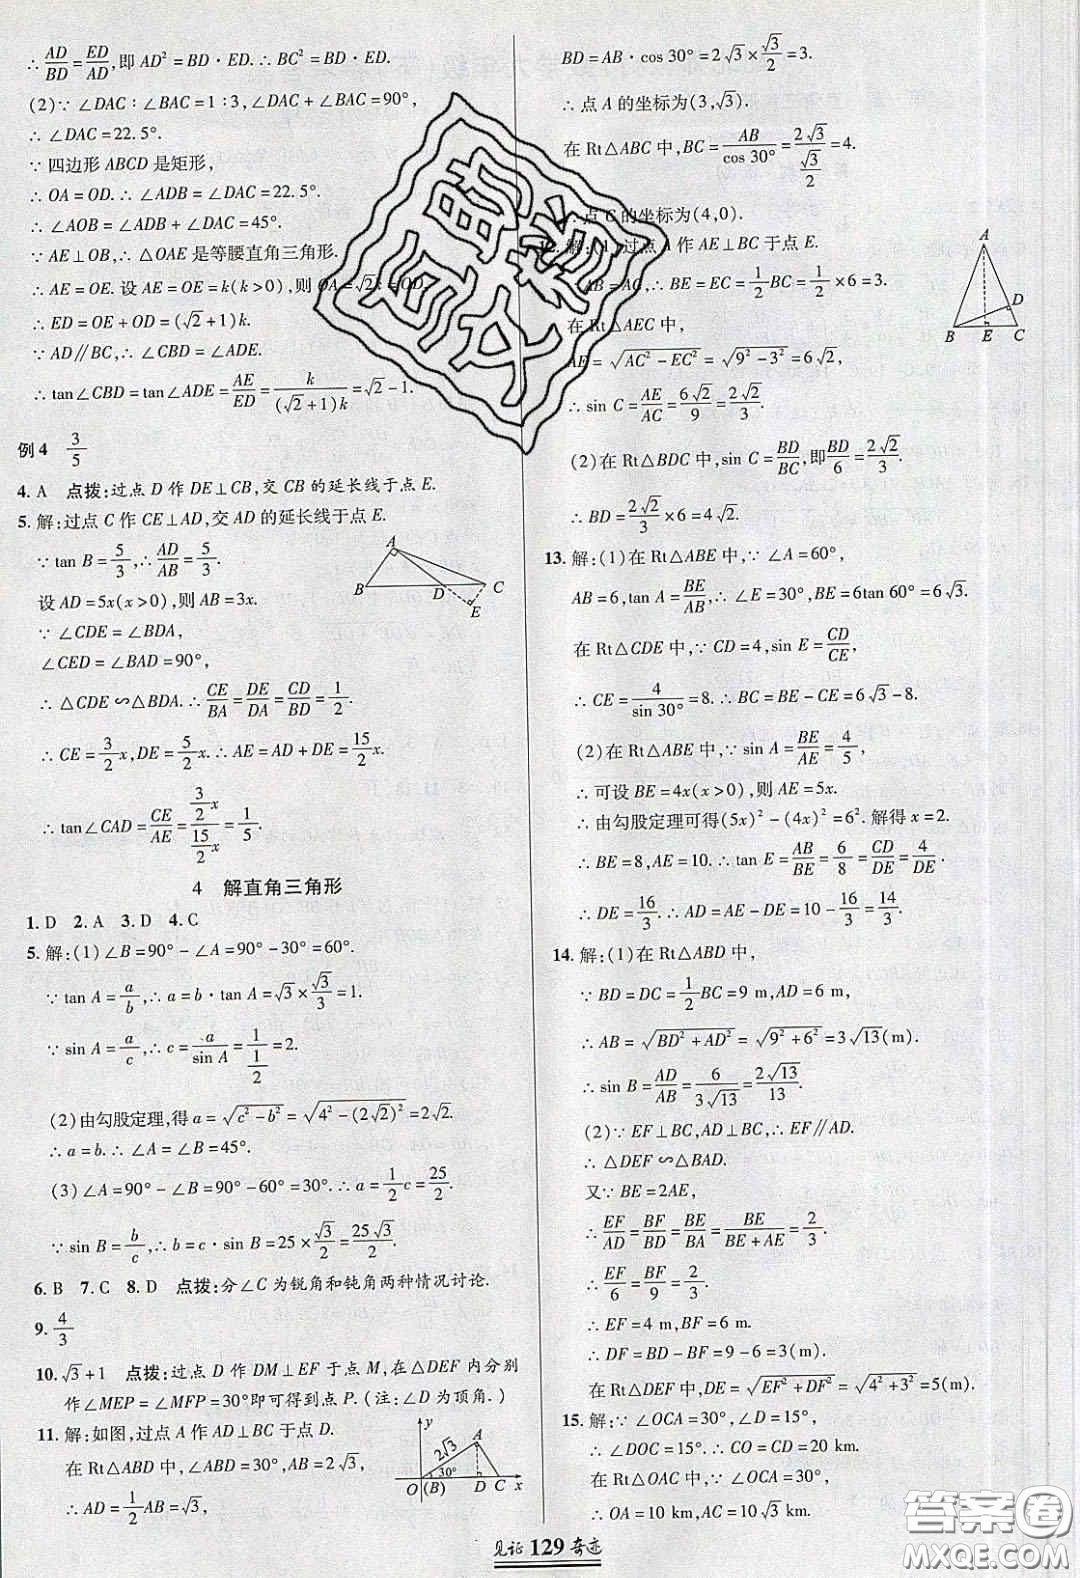 ∴ AD/BD = ED/AD, 即 AD² = BD · ED. ∴ BC² = BD · ED.
(2) ∵ ∠DAC : ∠BAC = 1 : 3, ∠DAC + ∠BAC = 90°,
∴ ∠DAC = 22.5°.
∵ 四边形 ABCD 是矩形,
∴ OA = OD. ∴ ∠ADB = ∠DAC = 22.5°.
∴ ∠AOB = ∠ADB + ∠DAC = 45°.
∵ AE ⊥ OB, ∴ △OAE 是等腰直角三角形.
∴ AE = OE. 设 AE = OE = k(k > 0), 则 OA = √2k = OD.
∴ ED = OE + OD = (√2 + 1)k.
∵ AD // BC, ∴ ∠CBD = ∠ADE.
∴ tan∠CBD = tan∠ADE = AE/ED = k/((√2 + 1)k) = √2 - 1.
例4 3/5
4. A 点拨: 过点 D 作 DE ⊥ CB, 交 CB 的延长线于点 E.
5. 解: 过点 C 作 CE ⊥ AD, 交 AD 的延长线于点 E.
∵ tan B = 5/3, ∴ AD/AB = 5/3.
设 AD = 5x(x > 0), 则 AB = 3x.
∵ ∠CDE = ∠BDA,
∠CED = ∠BAD = 90°,
∴ △CDE ∽ △BDA. ∴ CE/BA = DE/DA = CD/BD = 1/2.
∴ CE = 3/2 x, DE = 5/2 x. ∴ AE = AD + DE = 15/2 x.
∴ tan∠CAD = CE/AE = (3/2 x)/(15/2 x) = 1/5.
A
B D C
E
4 解直角三角形
1. D 2. A 3. D 4. C
5. 解: (1) ∠B = 90° - ∠A = 90° - 30° = 60°.
∵ tan A = a/b, ∴ a = b · tan A = √3 × √3/3 = 1.
∵ sin A = a/c, ∴ c = a/sin A = 1/(1/2) = 2.
(2) 由勾股定理, 得 a = √(c² - b²) = √(4² - (2√2)²) = 2√2.
∴ a = b. ∴ ∠A = ∠B = 45°.
(3) ∠A = 90° - ∠B = 90° - 60° = 30°. ∴ a = 1/2 c = 25/2.
∵ sin B = b/c, ∴ b = c · sin B = 25 × √3/2 = 25√3/2.
6. B 7. C 8. D 点拨: 分∠C 为锐角和钝角两种情况讨论.
9. 4/3
10. √3 + 1 点拨: 过点 D 作 DM ⊥ EF 于点 M, 在 △DEF 内分别
作∠MEP = ∠MFP = 30°即可得到点 P. (注: ∠D 为顶角.)
11. 解: 如图, 过点 A 作 AD ⊥ BC 于点 D.
在 Rt△ABD 中, ∠ABD = 30°, AB = 2√3,
∴ AD = 1/2 AB = √3,
y
A
2√3
30°
O (B) D C x
BD = AB · cos 30° = 2√3 × √3/2 = 3.
∴ 点 A 的坐标为(3, √3).
在 Rt△ABC 中, BC = AB/cos 30° = 2√3/(√3/2) = 4.
∴ 点 C 的坐标为(4, 0).
12. 解: (1) 过点 A 作 AE ⊥ BC 于点 E.
∵ AB = AC, ∴ BE = EC = 1/2 BC = 1/2 × 6 = 3.
在 Rt△AEC 中,
AE = √(AC² - EC²) = √(9² - 3²) = 6√2,
∴ sin C = AE/AC = 6√2/9 = 2√2/3.
(2) 在 Rt△BDC 中, sin C = BD/BC, 即 BD/6 = 2√2/3.
∴ BD = 2√2/3 × 6 = 4√2.
A
D
B E C
13. 解: (1) 在 Rt△ABE 中, ∵ ∠A = 60°,
AB = 6, tan A = BE/AB, ∴ ∠E = 30°, BE = 6tan 60° = 6√3.
在 Rt△CDE 中, ∵ CD = 4, sin E = CD/CE,
∴ CE = 4/sin 30° = 8. ∴ BC = BE - CE = 6√3 - 8.
(2) 在 Rt△ABE 中, ∵ sin A = BE/AE = 4/5,
∴ 可设 BE = 4x(x > 0), 则 AE = 5x.
∴ 由勾股定理可得(5x)² - (4x)² = 6². 解得 x = 2.
∴ BE = 8, AE = 10. ∴ tan E = AB/BE = 6/8 = CD/DE = 4/DE.
∴ DE = 16/3. ∴ AD = AE - DE = 10 - 16/3 = 14/3.
14. 解: (1) 在 Rt△ABD 中,
∵ BD = DC = 1/2 BC = 9 m, AD = 6 m,
∴ AB = √(BD² + AD²) = √(9² + 6²) = 3√13 (m).
∴ sin B = AD/AB = 6/(3√13) = 2√13/13.
(2) ∵ EF ⊥ BC, AD ⊥ BC, ∴ EF // AD.
∴ △DEF ∽ △BAD.
又∵ BE = 2AE,
∴ EF/AD = BF/BD = BE/BA = BE/(BE + AE) = 2/3.
∴ EF/6 = BF/9 = 2/3.
∴ EF = 4 m, BF = 6 m.
∴ DF = BD - BF = 9 - 6 = 3(m).
在 Rt△DEF 中, DE = √(EF² + DF²) = √(4² + 3²) = 5(m).
15. 解: ∵ ∠OCA = 30°, ∠D = 15°,
∴ ∠DOC = 15°. ∴ CO = CD = 20 km.
在 Rt△OAC 中, ∵ ∠OCA = 30°,
∴ OA = 10 km, AC = 10√3 km.
见证 129 奇迹
答案圈
MXQE.COM